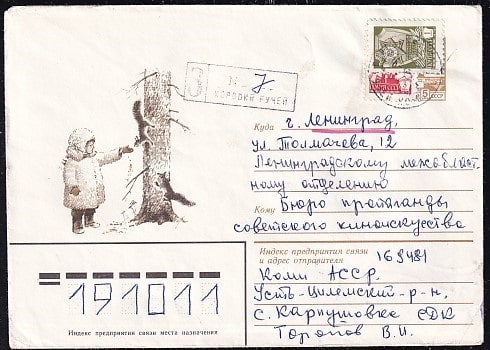 З
№ 7
КОРОВИЙ РУЧЕЙ
5
СССР
Куда г. Ленинград,
ул. Толмачева, 12
Ленинградскому межобласт-
ному отделению
Кому Бюро пропаганды
советского киноискусства
Индекс предприятия связи
и адрес отправителя 169481
Коми АССР.
Усть-Цилемский р-н.
с. Карпушовка СДК
Торопов В. И.
191011
Индекс предприятия связи места назначения